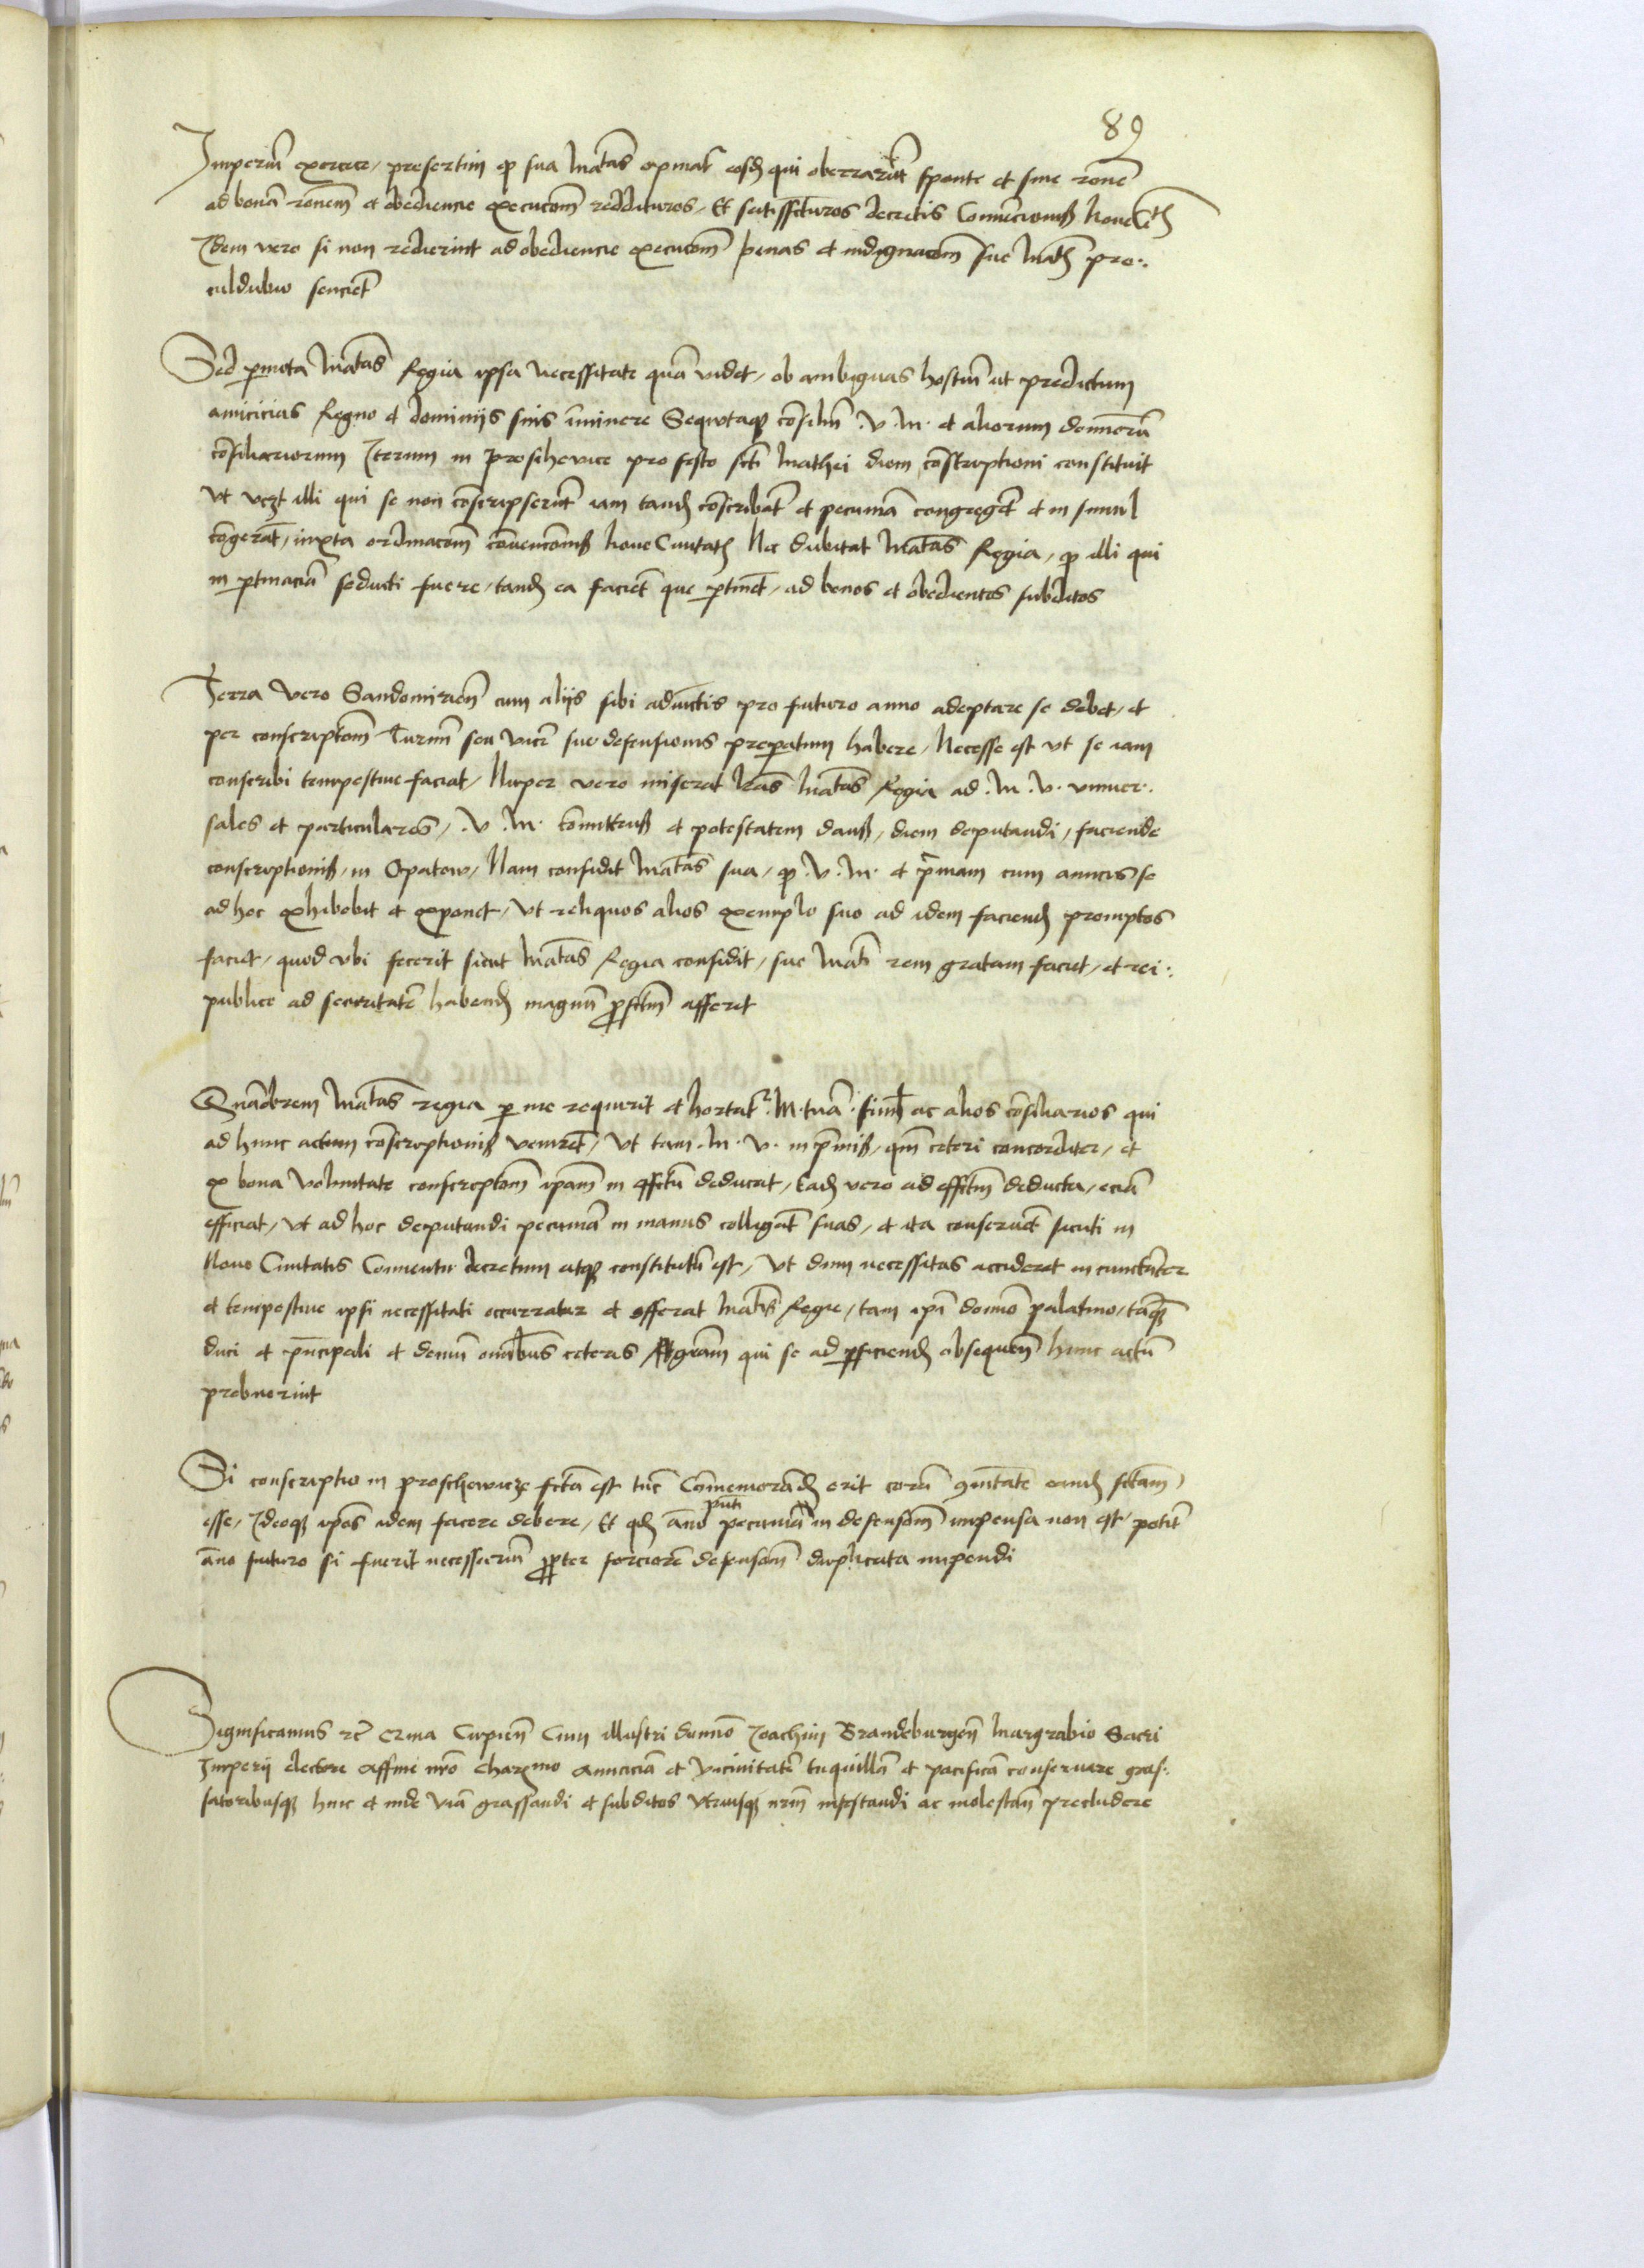 89
Imperiu exercere, presertim qp sua Matas opinat eosd qui oberrarut sponte et sine rone
ad bona ronem et obediencie execucom reddituros, Et satisfcturos decretis Convencionis
Idem vero si non redierint ad obediencie execucom penas et indignacom sue Matis pro:
culdubio sencient
Sed pmota Matas Regia ipsa necessitate qua videt, ob ambiguas hostiu ut predictum
amicicias Regno et dominiis suis iminere Sequtaq consiliu .v.M. et aliorum dominoru
consiliariorum Iterum in Proschevice pro festo scti Mathei diem conscriptioni constituit
Vt illi qui se non conscripserut iam tand conscribat et pecunia congreget et in simul
congerat, iuxta ordinacom convencionis Nove Civitatis Nec dubitat Matas Regia, qp illi qui
in ptinacia seducti fuere, tand ea faciet que ptinet, ad bonos et obedientes subditos
Terra vero Sandomirien cum aliis sibi adiuctis pro futuro anno adeptare se debet, et
per conscriptom Turnu seu vice sue defensionis preparatum habere, Necesse est vt se iam
conscribi tempestive faciat, Nuper vero miserat lras Matas Regia ad .M.v. univer:
sales et particulares, .v.M. et potestatem dans, diem deputandi, faciende
conscriptionis, in Opatow, Nam confidit Matas sua, qp .v.M. et prima cum amicis se
ad hoc exhibebit et exponet, Vt reliquos alios exemplo suo ad idem faciend promptos
faciet, quod vbi fecerit sicut Matas Regia confidit, sue Mati rem gratam faciet, et rei:
publice ad securitate habend magnu pfctum afferet
Quaobrem Matas regia p me requirit et hortat M. tua simul ac alios consiliarios qui
ad hunc actum conscriptionis veniret, Vt tam .M.v. in primis, qm ceteri concorditer, et
ex bona voluntate conscriptom ipam in effctu deducat, Ead vero ad effctum deducta, ecia
efficiat, Vt ad hoc deputandi pecunia in manus colligat suas, et ita conservet sicuti in
Novo Civitatis Conventu decretum atq constitutu est, Vt dum necessitas accideret incunctanter
et tempestive ipsi necessitati occurratur et offerat Matis Regie, tam ipi domino palatino, taq
duci et principali et demu omibus ceteris gram qui se ad pficiend obsequen hunc actu
prebuerint
Si conscriptio in proschowicze fcta est tuc Comemorand erit cora comitate eand fctam
esse, Ideoq ipos idem facere debere, Et qd ano pnti pecunia in defensom impensa non est, potit
ano futuro si fuerit necessariu ppter forciore defensom duplicata impendi
Significamus etc Cupien Cum illustri domino Joachim Brandeburgen Margrabio Sacri
Imperii electore Affine nro Charmo Amicicia et vicinitate traquilla et pacifica conservare gras:
satoribusq hinc et inde via grassandi et subditos vtriusq nrm infestandi ac molestan precludere